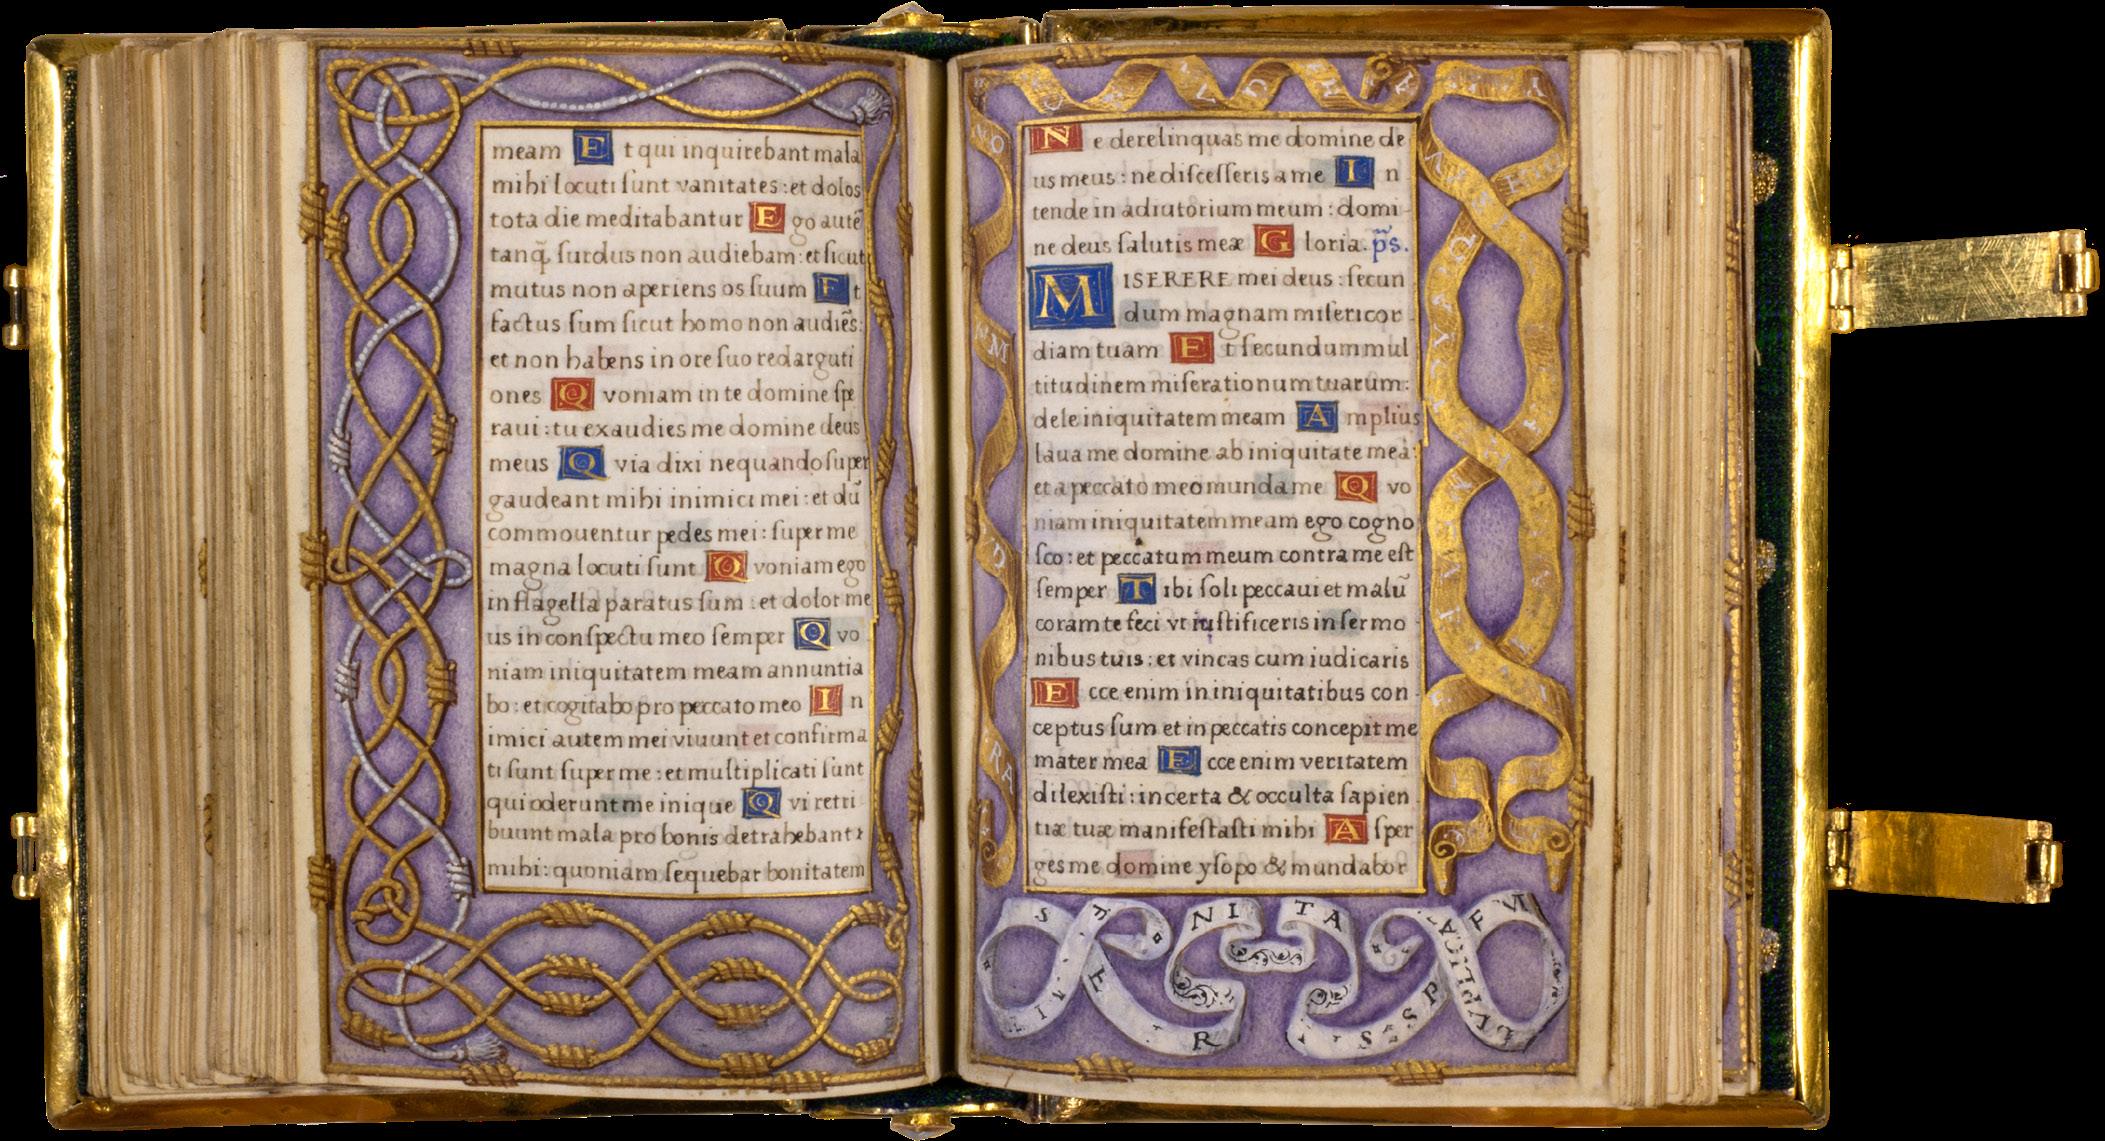 meam E t qui inquirebant mala
mihi locuti ſunt vanitates : et dolos
tota die meditabantur E go autē
tanq̄ ſurdus non audiebam : et ſicut
mutus non aperiens os ſuum E t
factus ſum ſicut homo non audiēs :
et non habens in ore ſuo redarguti
ones Q voniam in te domine ſpe
raui : tu exaudies me domine deus
meus Q via dixi nequando ſuper
gaudeant mihi inimici mei : et dū
commouentur pedes mei : ſuper me
magna locuti ſunt Q voniam ego
in flagella paratus ſum : et dolor me
us in conſpectu meo ſemper Q vo
niam iniquitatem meam annuntia
bo : et cogitabo pro peccato meo I n
imici autem mei viuunt et confirma
ti ſunt ſuper me : et multiplicati ſunt
qui oderunt me inique Q vi retri
buunt mala pro bonis detrahebant
mihi : quoniam ſequebar bonitatem
N e derelinquas me domine de
us meus : ne diſceſſeris a me I n
tende in adiutorium meum : domi
ne deus ſalutis meæ G loria. p̄s.
M ISERERE mei deus : ſecun
dum magnam miſericor
diam tuam E t ſecundum mul
titudinem miſerationum tuarum :
dele iniquitatem meam A mplius
laua me domine ab iniquitate mea :
et a peccato meo munda me Q vo
niam iniquitatem meam ego cogno
ſco : et peccatum meum contra me eſt
ſemper T ibi ſoli peccaui et malū
coram te feci vt iuſtificeris in ſermo
nibus tuis : et vincas cum iudicaris
E cce enim in iniquitatibus con
ceptus ſum et in peccatis concepit me
mater mea E cce enim veritatem
dilexiſti : incerta & occulta ſapien
tiæ tuæ manifeſtaſti mihi A ſper
ges me domine yſopo & mundabor